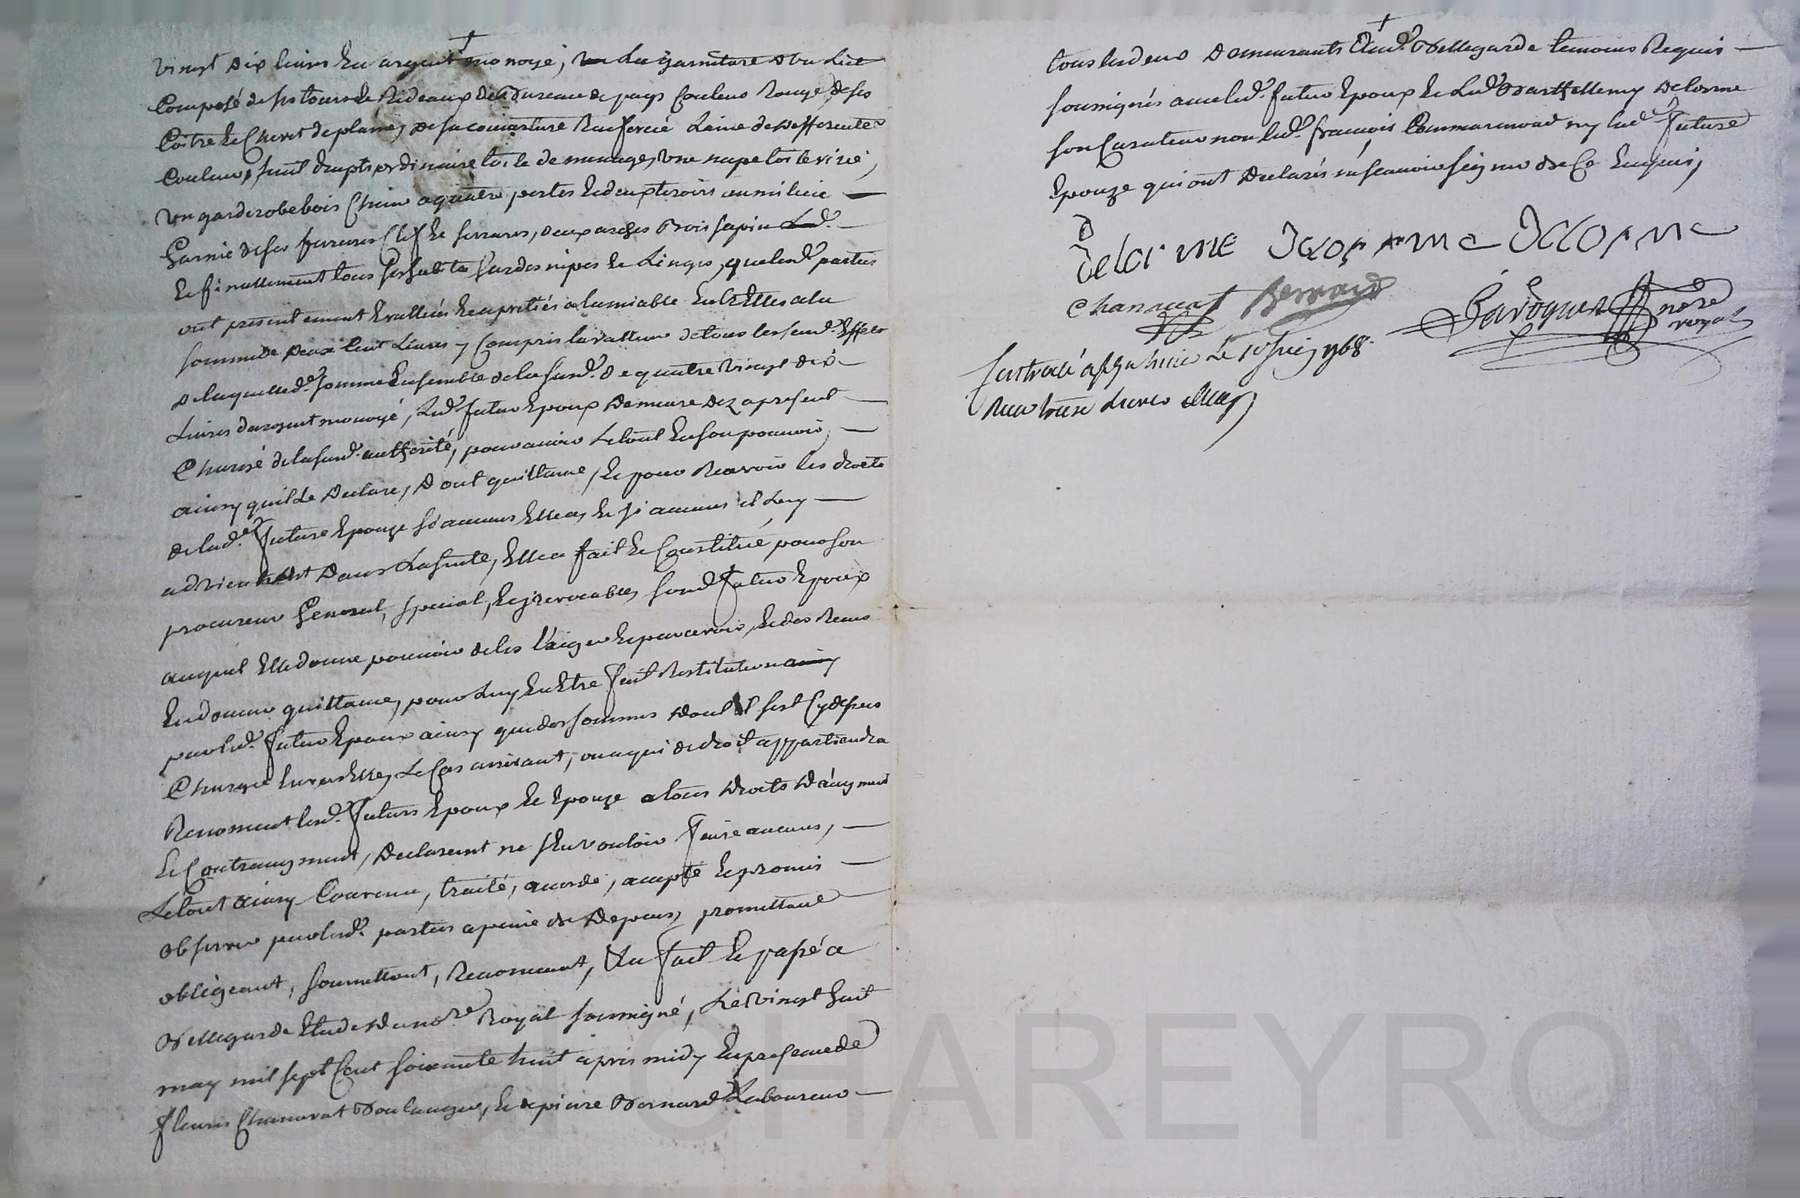 vingt dix livres En argent monoyé, La garniture d'un Lit
Composé de ses tours de Rideaux de Bureau de pays Couleur Rouge de son
Coitre le Chevet de plume, de sa couverture laine de differente
Couleur, huit draps ordinaire toile de menage, une nape toile
un garderobe bois Chene a quatre portes et deux tiroirs au milieu
Garnie de ses ferrures Clef et serrures, deux arches bois sapin
Et finallement tous ses habits hardes nipes Et Linges, que lesd. parties
ont presentement Evallués Et aprétiés a lamiable Entr'Elles a la
somme de deux Cent Livres y Compris la valleur de tous les susd. Effets
de laquelle de. somme Ensemble de la susd. de quatre vingt dix
Livres d'argent monoyé, Led. futur Epoux demeure dez apresent
Chargé de la susd. authorité, pour avoir Le tout En son pouvoir,
ainsy quil Le declare, dont quittance, Et pour Recevoir les droits
de lad. future Epouze sy aucuns Elle a, Et sy aucuns il Luy
advient dans La suitte, Elle a fait Et Constitué pour son
procureur General, special, Et jrrevocable, sond. futur Epoux
auquel Elle donne pouvoir de les Exiger Et percevoir, Et des Reçus
En donner quittance, pour Luy En Etre fait Restitution
par led. futur Epoux ainsy que des sommes dont il s'est Cy dessus
Chargé Envers Elle, Le Cas arrivant, ou a qui de droit appartiendra
Renoncent lesd. futurs Epoux Et Epouze a tous droits d'augment
Et Contraugment, declarant ne s'En vouloir faire aucuns,
Le tout ainsy Convenu, traité, acordé, accepté Et promis
observer par lesd. parties a peine de depens, promettant
obligeant, soumettant, Renoncant, &a fait Et passé a
Bellegarde Etude du nore. Royal soussigné, Le Vingt huit
may mil sept Cent soixante huit après midy En presence de
fleury Chanavat Boulanger, Et de pierre Bernard Laboureur
tous les deux demeurants aud. Bellegarde temoins Requis
soussignés avec led. futur Epoux Et Led. Barthellemy delorme
son Curateur non led. françois ny lade. future
Epouze qui ont declarés ne scavoir signer de Ce Enquis,
D
delorme delorme delorme
Chanavat Bernard
nore
royal
1768